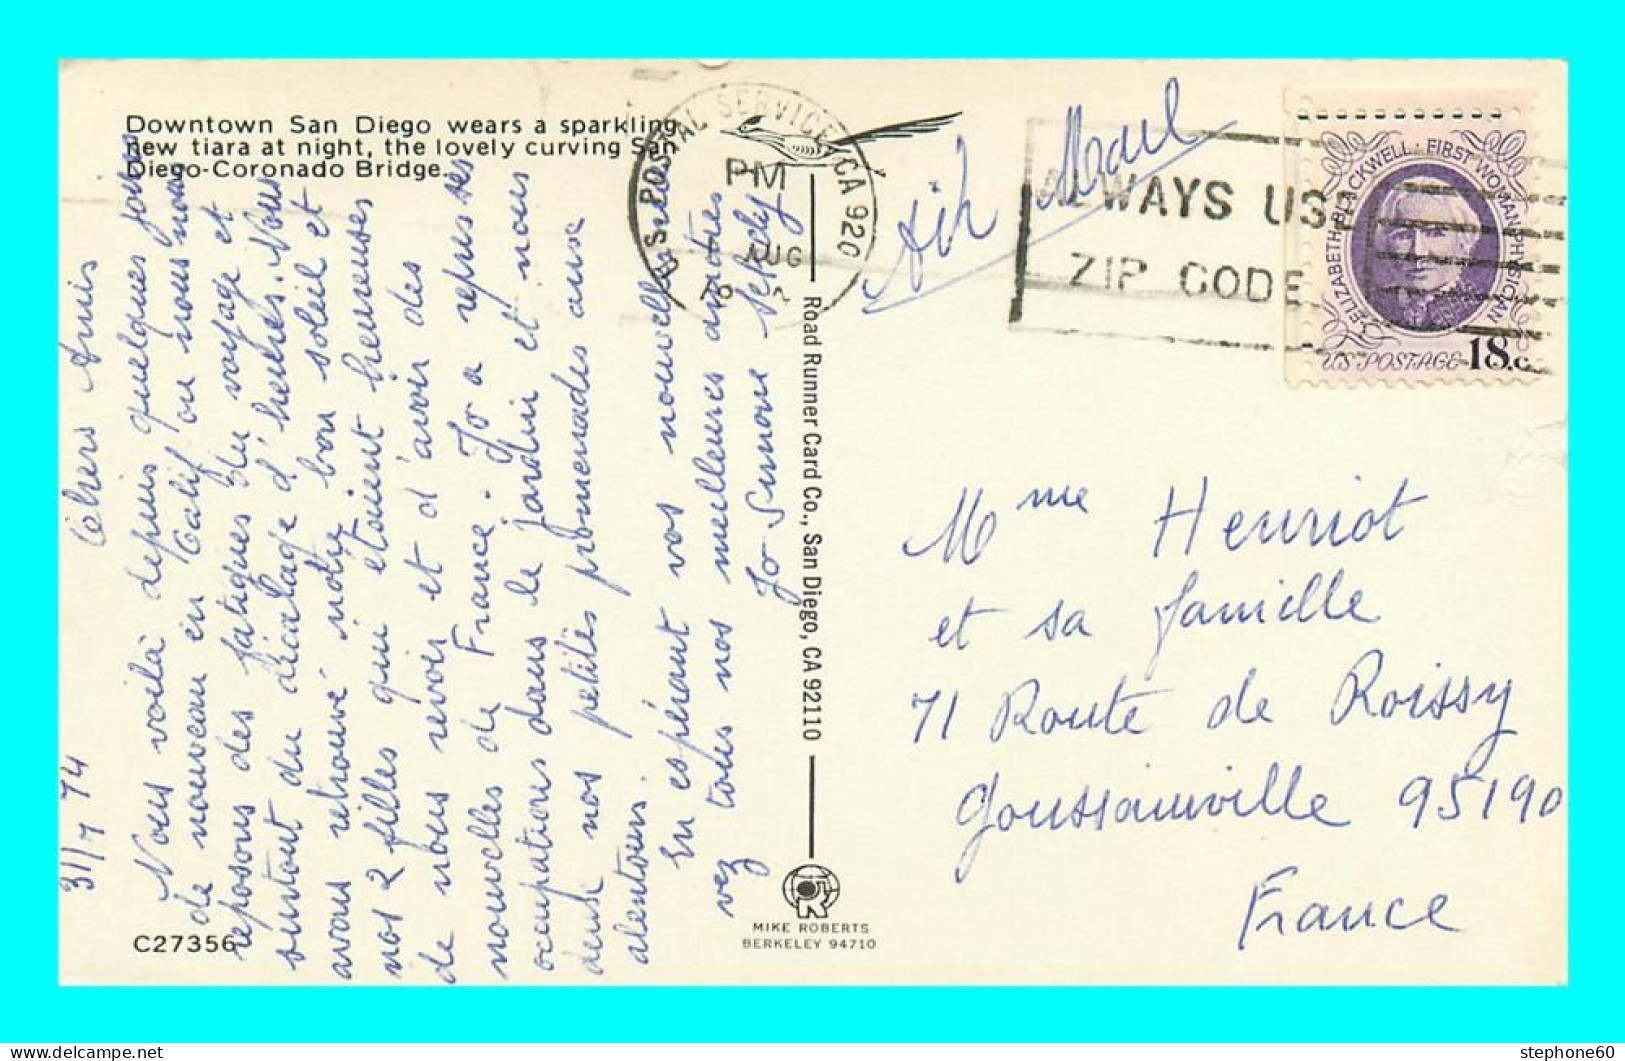 Downtown San Diego wears a sparkling
new tiara at night, the lovely curving San
Diego-Coronado Bridge.
31/7 74
Chers Amis
Nous voilà depuis quelques jours
de nouveau en Calif où nous nous
reposons des fatigues du voyage et
surtout du décalage d'heures. Nous
avons retrouvé notre bon soleil et
nos 2 filles qui étaient heureuses
de nous revoir et d'avoir des
nouvelles de France. Jo a repris ses
occupations dans le jardin et nous
nos petites promenades aux
alentours.
En espérant vos nouvelles
vez tous nos meilleures amitiés
Jo Simone
C27356
U.S. POSTAL SERVICE CA 920
PM
AUG
Road Runner Card Co., San Diego, CA 92110
MIKE ROBERTS
BERKELEY 94710
Air Mail
ALWAYS USE
ZIP CODE
ELIZABETH BLACKWELL · FIRST WOMAN PHYSICIAN
US POSTAGE 18c
Mme Henriot
et sa famille
71 Route de Roissy
Goussainville 95190
France
stephone60